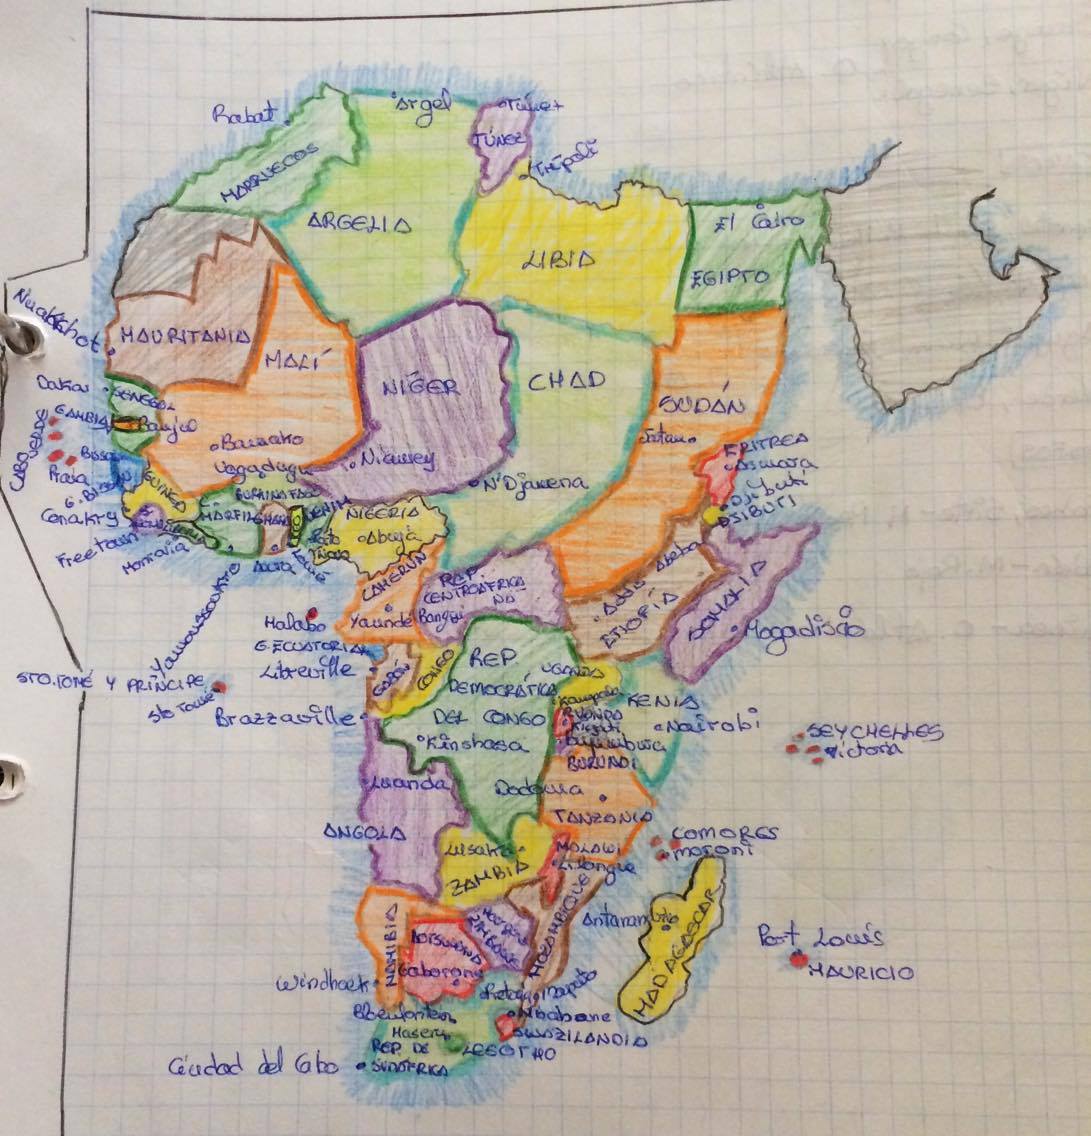 Rabat
Argel
Túnez
TÚNEZ
Trípoli
MARRUECOS
ARGELIA
LIBIA
El Cairo
EGIPTO
Nuakshot
MAURITANIA
MALÍ
NÍGER
CHAD
SUDÁN
Dakar
SENEGAL
GAMBIA
Banjul
CABO VERDE
Praia
Bissau
G. BISSAU
GUINEA
Conakry
Freetown
Monrovia
Bamako
Uagadugu
BURKINA FASO
Niamey
N'Djamena
Jartum
ERITREA
Asmara
Djibuti
DSIBUTI
MARFIL
GHANA
BENIN
Porto
Novo
Lomé
Accra
Yamoussoukro
NIGERIA
Abuja
CAMERUN
Yaundé
REP.
CENTROAFRICA
NA
Bangui
Addis Abeba
ETIOPÍA
SOMALIA
Mogadiscio
Malabo
G. ECUATORIAL
Libreville
GABÓN
CONGO
STO. TOMÉ Y PRÍNCIPE
Sto Tomé
Brazzaville
REP.
DEMOCRÁTICA
DEL CONGO
Kinshasa
UGANDA
Kampala
KENIA
Nairobi
RUANDA
Kigali
Bujumbura
BURUNDI
SEYCHELLES
Victoria
Luanda
ANGOLA
Dodoma
TANZANIA
COMORES
Moroni
Lusaka
ZAMBIA
MALAWI
Lilongüe
MOZAMBIQUE
Antananarivo
MADAGASCAR
Port Louis
MAURICIO
NAMIBIA
BOTSWANA
Gaborone
ZIMBABUE
Windhoek
Maputo
Bloemfontein
Mbabane
SWAZILANDIA
Maseru
LESOTHO
REP. DE
SUDÁFRICA
Ciudad del Cabo